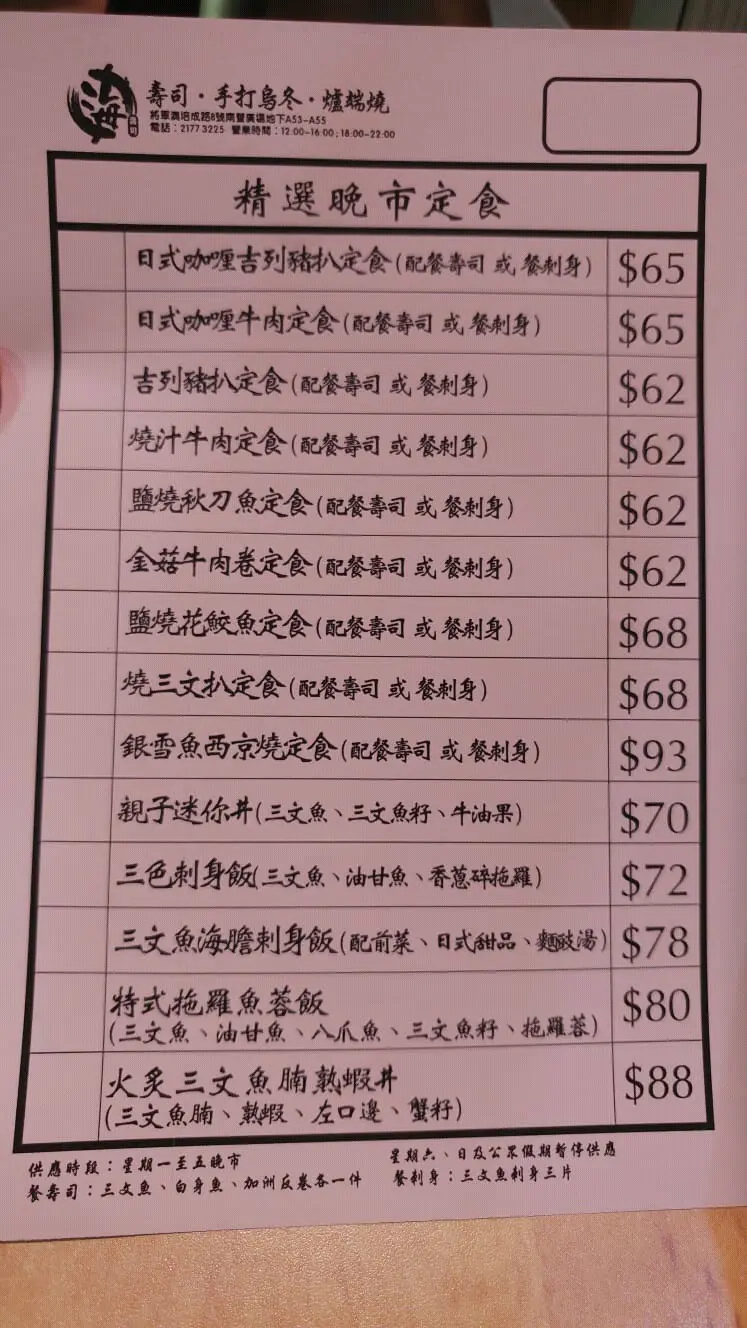 海
壽司
壽司・手打烏冬・爐端燒
將軍澳培成路8號南豐廣場地下A53-A55
電話：2177 3225 營業時間：12:00-16:00；18:00-22:00
精選晚市定食
日式咖喱吉列豬扒定食(配餐壽司 或 餐刺身) $65
日式咖喱牛肉定食(配餐壽司 或 餐刺身) $65
吉列豬扒定食(配餐壽司 或 餐刺身) $62
燒汁牛肉定食(配餐壽司 或 餐刺身) $62
鹽燒秋刀魚定食(配餐壽司 或 餐刺身) $62
金菇牛肉卷定食(配餐壽司 或 餐刺身) $62
鹽燒花鮫魚定食(配餐壽司 或 餐刺身) $68
燒三文扒定食(配餐壽司 或 餐刺身) $68
銀雪魚西京燒定食(配餐壽司 或 餐刺身) $93
親子迷你丼(三文魚、三文魚籽、牛油果) $70
三色刺身飯(三文魚、油甘魚、香蔥碎拖羅) $72
三文魚海膽刺身飯(配前菜、日式甜品、麵豉湯) $78
特式拖羅魚蓉飯 $80
(三文魚、油甘魚、八爪魚、三文魚籽、拖羅蓉)
火炙三文魚腩熟蝦丼 $88
(三文魚腩、熟蝦、左口邊、蟹籽)
供應時段：星期一至五晚市 星期六、日及公眾假期暫停供應
餐壽司：三文魚、白身魚、加洲反卷各一件 餐刺身：三文魚刺身三片